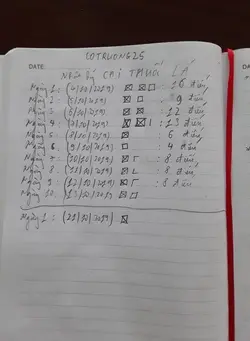 COTRUONG25
DATE:
NHẬT KÝ CAI THUỐC LÁ
Ngày 1: (4/10/2019) : 16 điếu
Ngày 2: (5/10/2019) : 9 điếu
Ngày 3: (6/10/2019) : 12 điếu
Ngày 4: (7/10/2019) : 13 điếu
Ngày 5: (8/10/2019) : 6 điếu
Ngày 6: (9/10/2019) : 4 điếu
Ngày 7: (10/10/2019) : 8 điếu
Ngày 8: (11/10/2019) : 8 điếu
Ngày 9: (12/10/2019) : 8 điếu
Ngày 10: (13/10/2019)
Ngày 1: (21/10/2019)